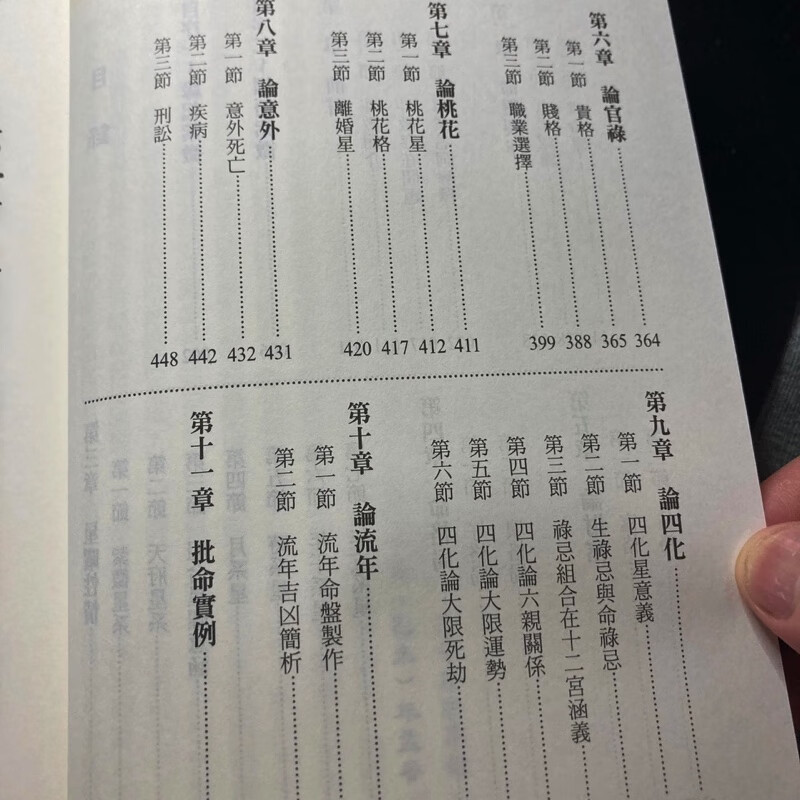 第六章　論官祿……364
第一節　貴格……365
第二節　賤格……388
第三節　職業選擇……399
第七章　論桃花……411
第一節　桃花星……412
第二節　桃花格……417
第三節　離婚星……420
第八章　論意外……431
第一節　意外死亡……432
第二節　疾病……442
第三節　刑訟……448
第九章　論四化……
第一節　四化星意義……
第二節　生祿忌與命祿忌……
第三節　祿忌組合在十二宮涵義……
第四節　四化論六親關係……
第五節　四化論大限運勢……
第六節　四化論大限死劫……
第十章　論流年……
第一節　流年命盤製作……
第二節　流年吉凶簡析……
第十一章　批命實例……